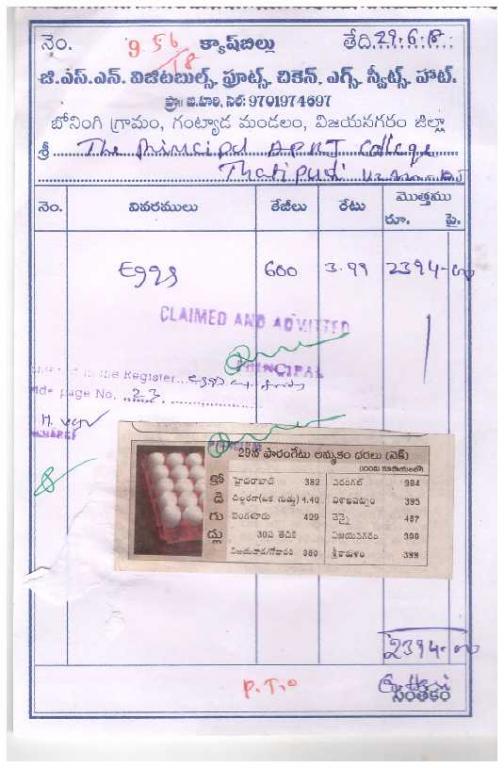 నెం. 956/18 క్యాష్‌బిల్లు తేది. 29.6.18
జి.ఎస్.ఎన్. విజిటబుల్స్, ఫ్రూట్స్, చికెన్, ఎగ్స్, స్వీట్స్, హాట్.
ప్రొ॥ బి.హరి, సెల్: 9701974697
బోనంగి గ్రామం, గంట్యాడ మండలం, విజయనగరం జిల్లా
శ్రీ The Principal APRJ College
Thatipudi
నెం. వివరములు కేజీలు రేటు మొత్తము
రూ. పై.
Eggs 600 3.99 2394-00
CLAIMED AND ADMITTED
PRINCIPAL
in the Register
page No. 23
29న ఫారంగేటు అమ్మకం ధరలు (నెక్)
కోడి గుడ్లు
హైదరాబాద్ 382 వరంగల్ 384
చిల్లర(ఒక గుడ్డు) 4.40 విశాఖపట్నం 395
బెంగళూరు 429 చెన్నై 407
30వ తేదీకి విజయనగరం 399
విజయవాడ/గోదావరి 380 శ్రీకాకుళం 399
2394-00
P.T.O
సంతకం